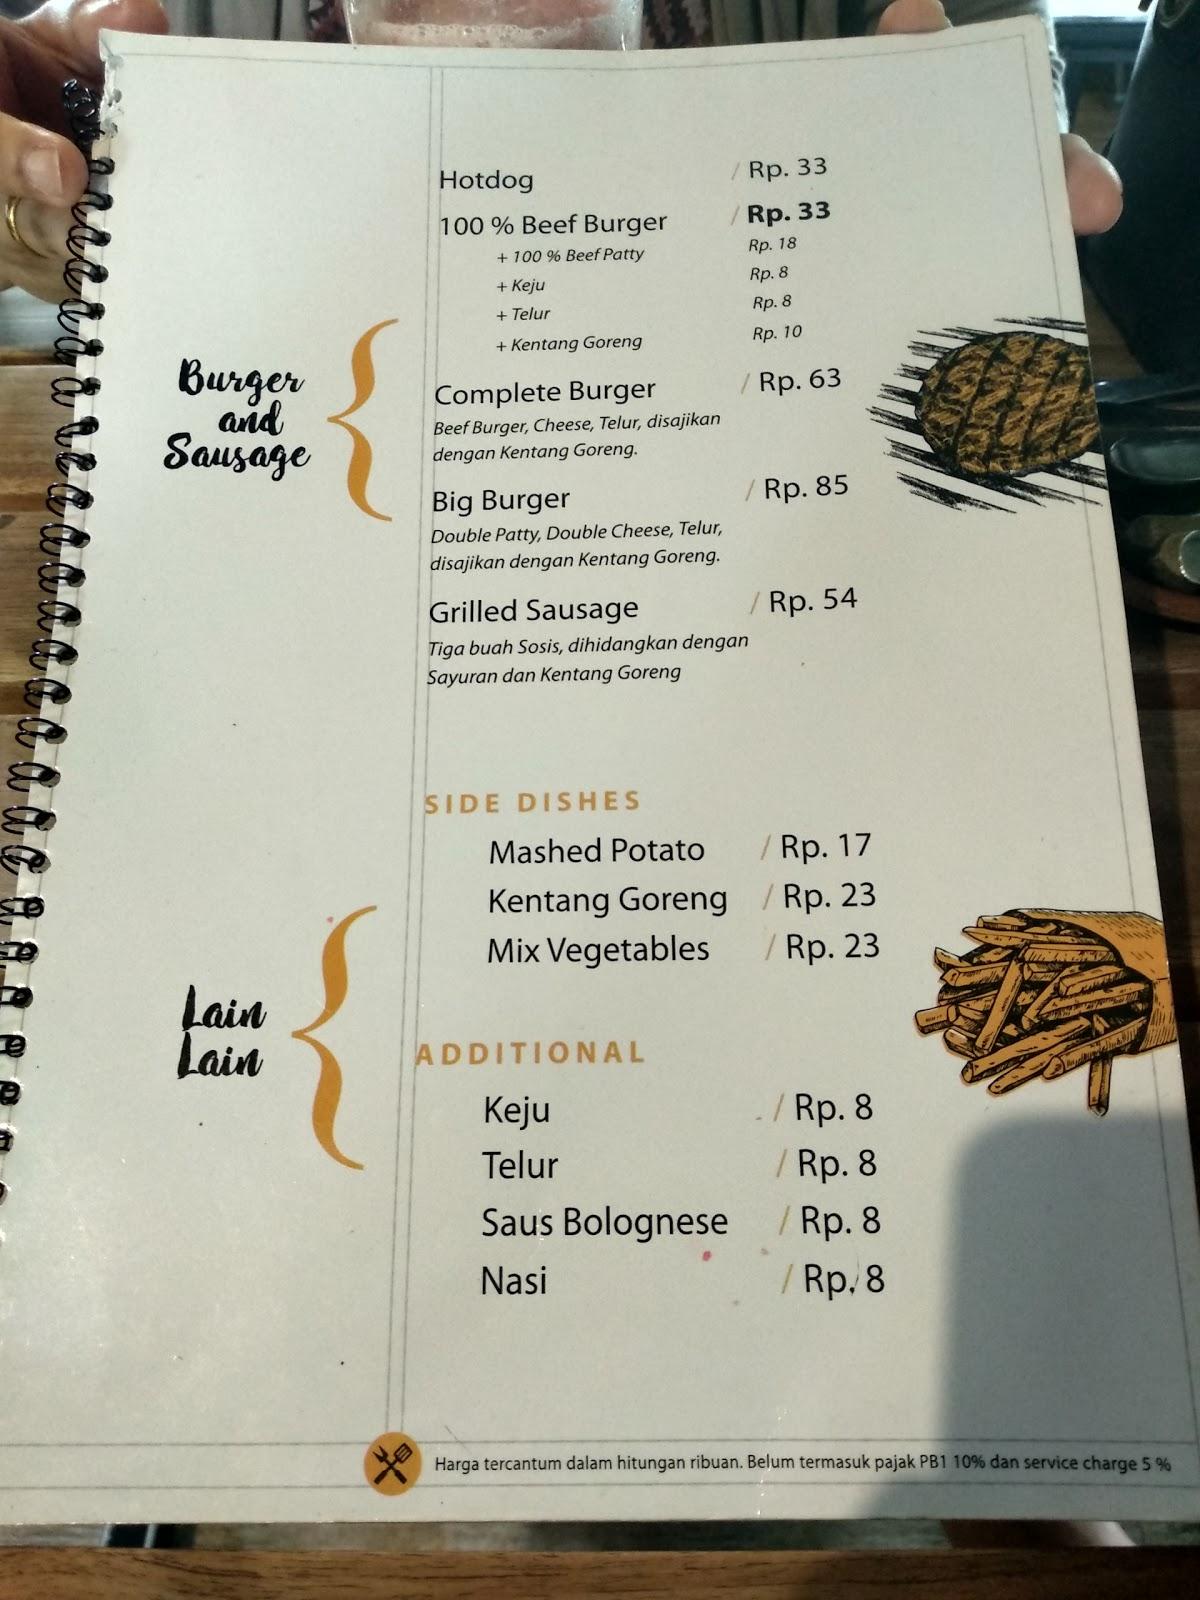 Hotdog / Rp. 33
100 % Beef Burger / Rp. 33
+ 100 % Beef Patty Rp. 18
+ Keju Rp. 8
+ Telur Rp. 8
+ Kentang Goreng Rp. 10
Burger
and
Sausage
Complete Burger / Rp. 63
Beef Burger, Cheese, Telur, disajikan
dengan Kentang Goreng.
Big Burger / Rp. 85
Double Patty, Double Cheese, Telur,
disajikan dengan Kentang Goreng.
Grilled Sausage / Rp. 54
Tiga buah Sosis, dihidangkan dengan
Sayuran dan Kentang Goreng
SIDE DISHES
Mashed Potato / Rp. 17
Kentang Goreng / Rp. 23
Mix Vegetables / Rp. 23
Lain
Lain
ADDITIONAL
Keju / Rp. 8
Telur / Rp. 8
Saus Bolognese / Rp. 8
Nasi / Rp. 8
Harga tercantum dalam hitungan ribuan. Belum termasuk pajak PB1 10% dan service charge 5 %